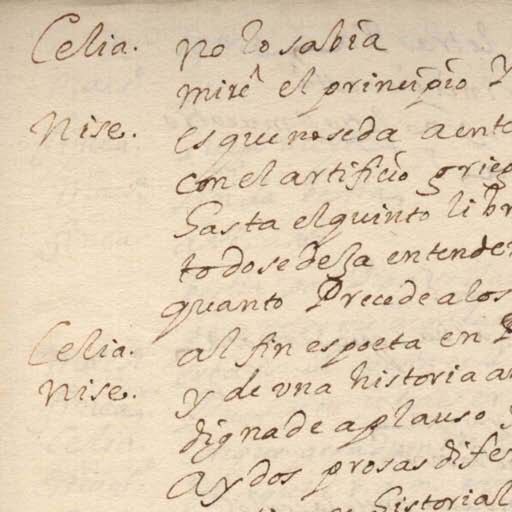 Celia. no lo sabia
mire el principio y
Nise. es que no se da a ent
con el artificio grieg
hasta el quinto libr
todo se deja entender
quanto Precede a los
Celia. al fin es poeta en P
Nise. y de vna historia a
digna de aplauso y
Ay dos prosas dife
historial